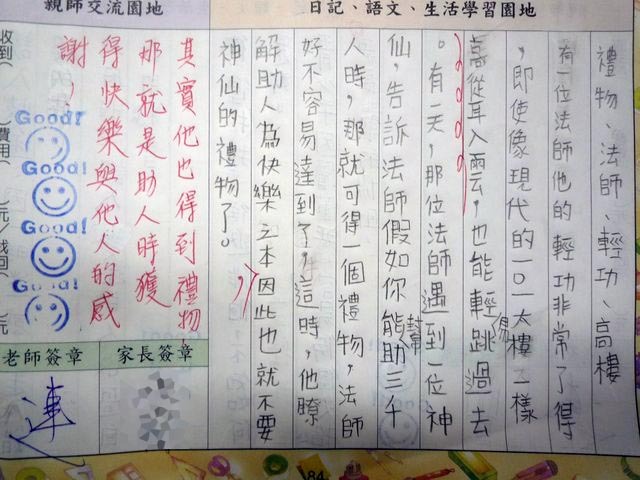 親師交流園地
日記、語文、生活學習園地
禮物、法師、輕功、高樓
有一位法師他的輕功非常了得
，即使像現代的一〇一大樓一樣
高從耳入兩云，也能輕跳過去
易
。有一天，那位法師遇到一位神
仙，告訴法師假如你能助三千
幫
人時，那就可得一個禮物，法師
好不容易達到了，這時，他瞭
解助人為快樂之本因此也就不要
神仙的禮物了。
其實他也得到禮物，
那就是助人時獲
得快樂與他人的感
謝！
Good!
Good!
Good!
Good!
收到(
)費用(
)元/找回(
)元
老師簽章
家長簽章
連
84